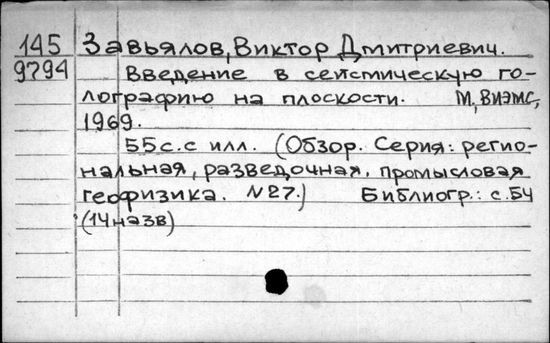 145 Завьялов, Виктор Дмитриевич.
9794 Введение в сейсмическую го-
лографию на плоскости. М, ВИЭМС,
1969.
55с. с илл. (Обзор. Серия: регио-
нальная, разведочная, промысловая
геофизика. N27.) Библиогр.: с.54
(14назв)